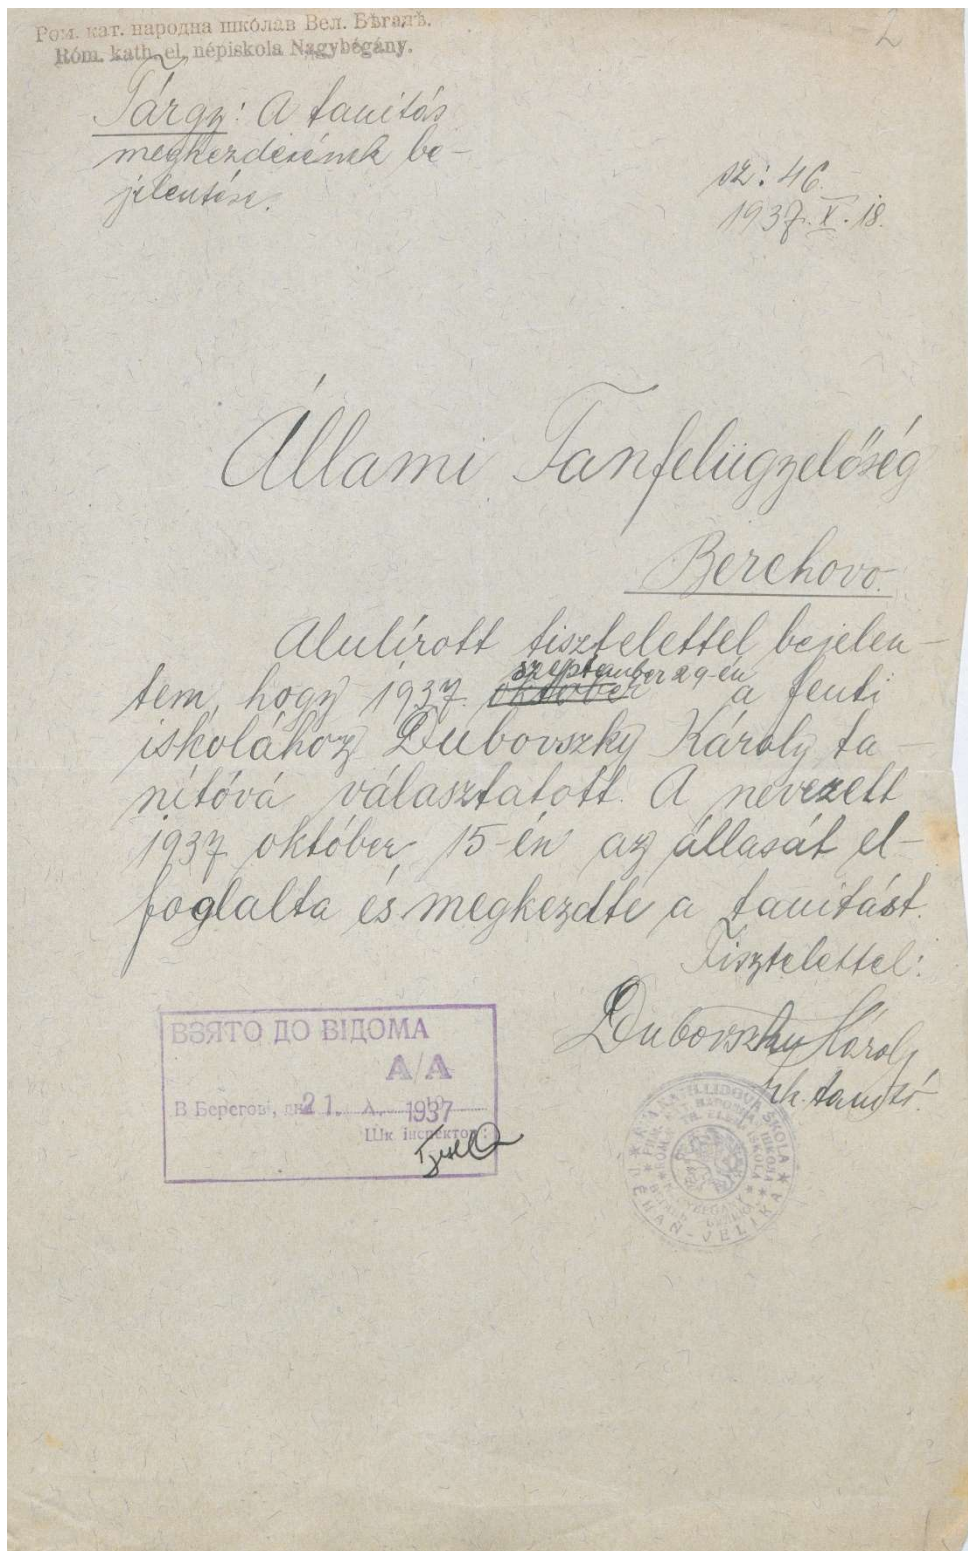 2
Ром. кат. народна школав Вел. Бѣгадѣ.
Róm. kath. el. népiskola Nagybégány.
Tárgy: A tanitás
megkezdésének be-
jelentése.
sz: 46.
1937. X. 18.
Állami Tanfelügyelőség
Berehovo.
Alulírott tisztelettel bejelen-
szeptember 29-én
tem, hogy 1937. október a fenti
iskolához Dubovszky Károly ta-
nítóvá választatott. A nevezett
1937 október 15-én az állását el-
foglalta és megkezdte a tanitást.
Tisztelettel:
Dubovszky Károly
rk. tanító.
ВЗЯТО ДО ВІДОМА
A/A
В Берегові, дня 21. X. 1937
Шк інспектор:
ĽUDOVÁ ŠKOLA
NAGYBÉGÁNY
BÉHAŇ-VELIKÁ